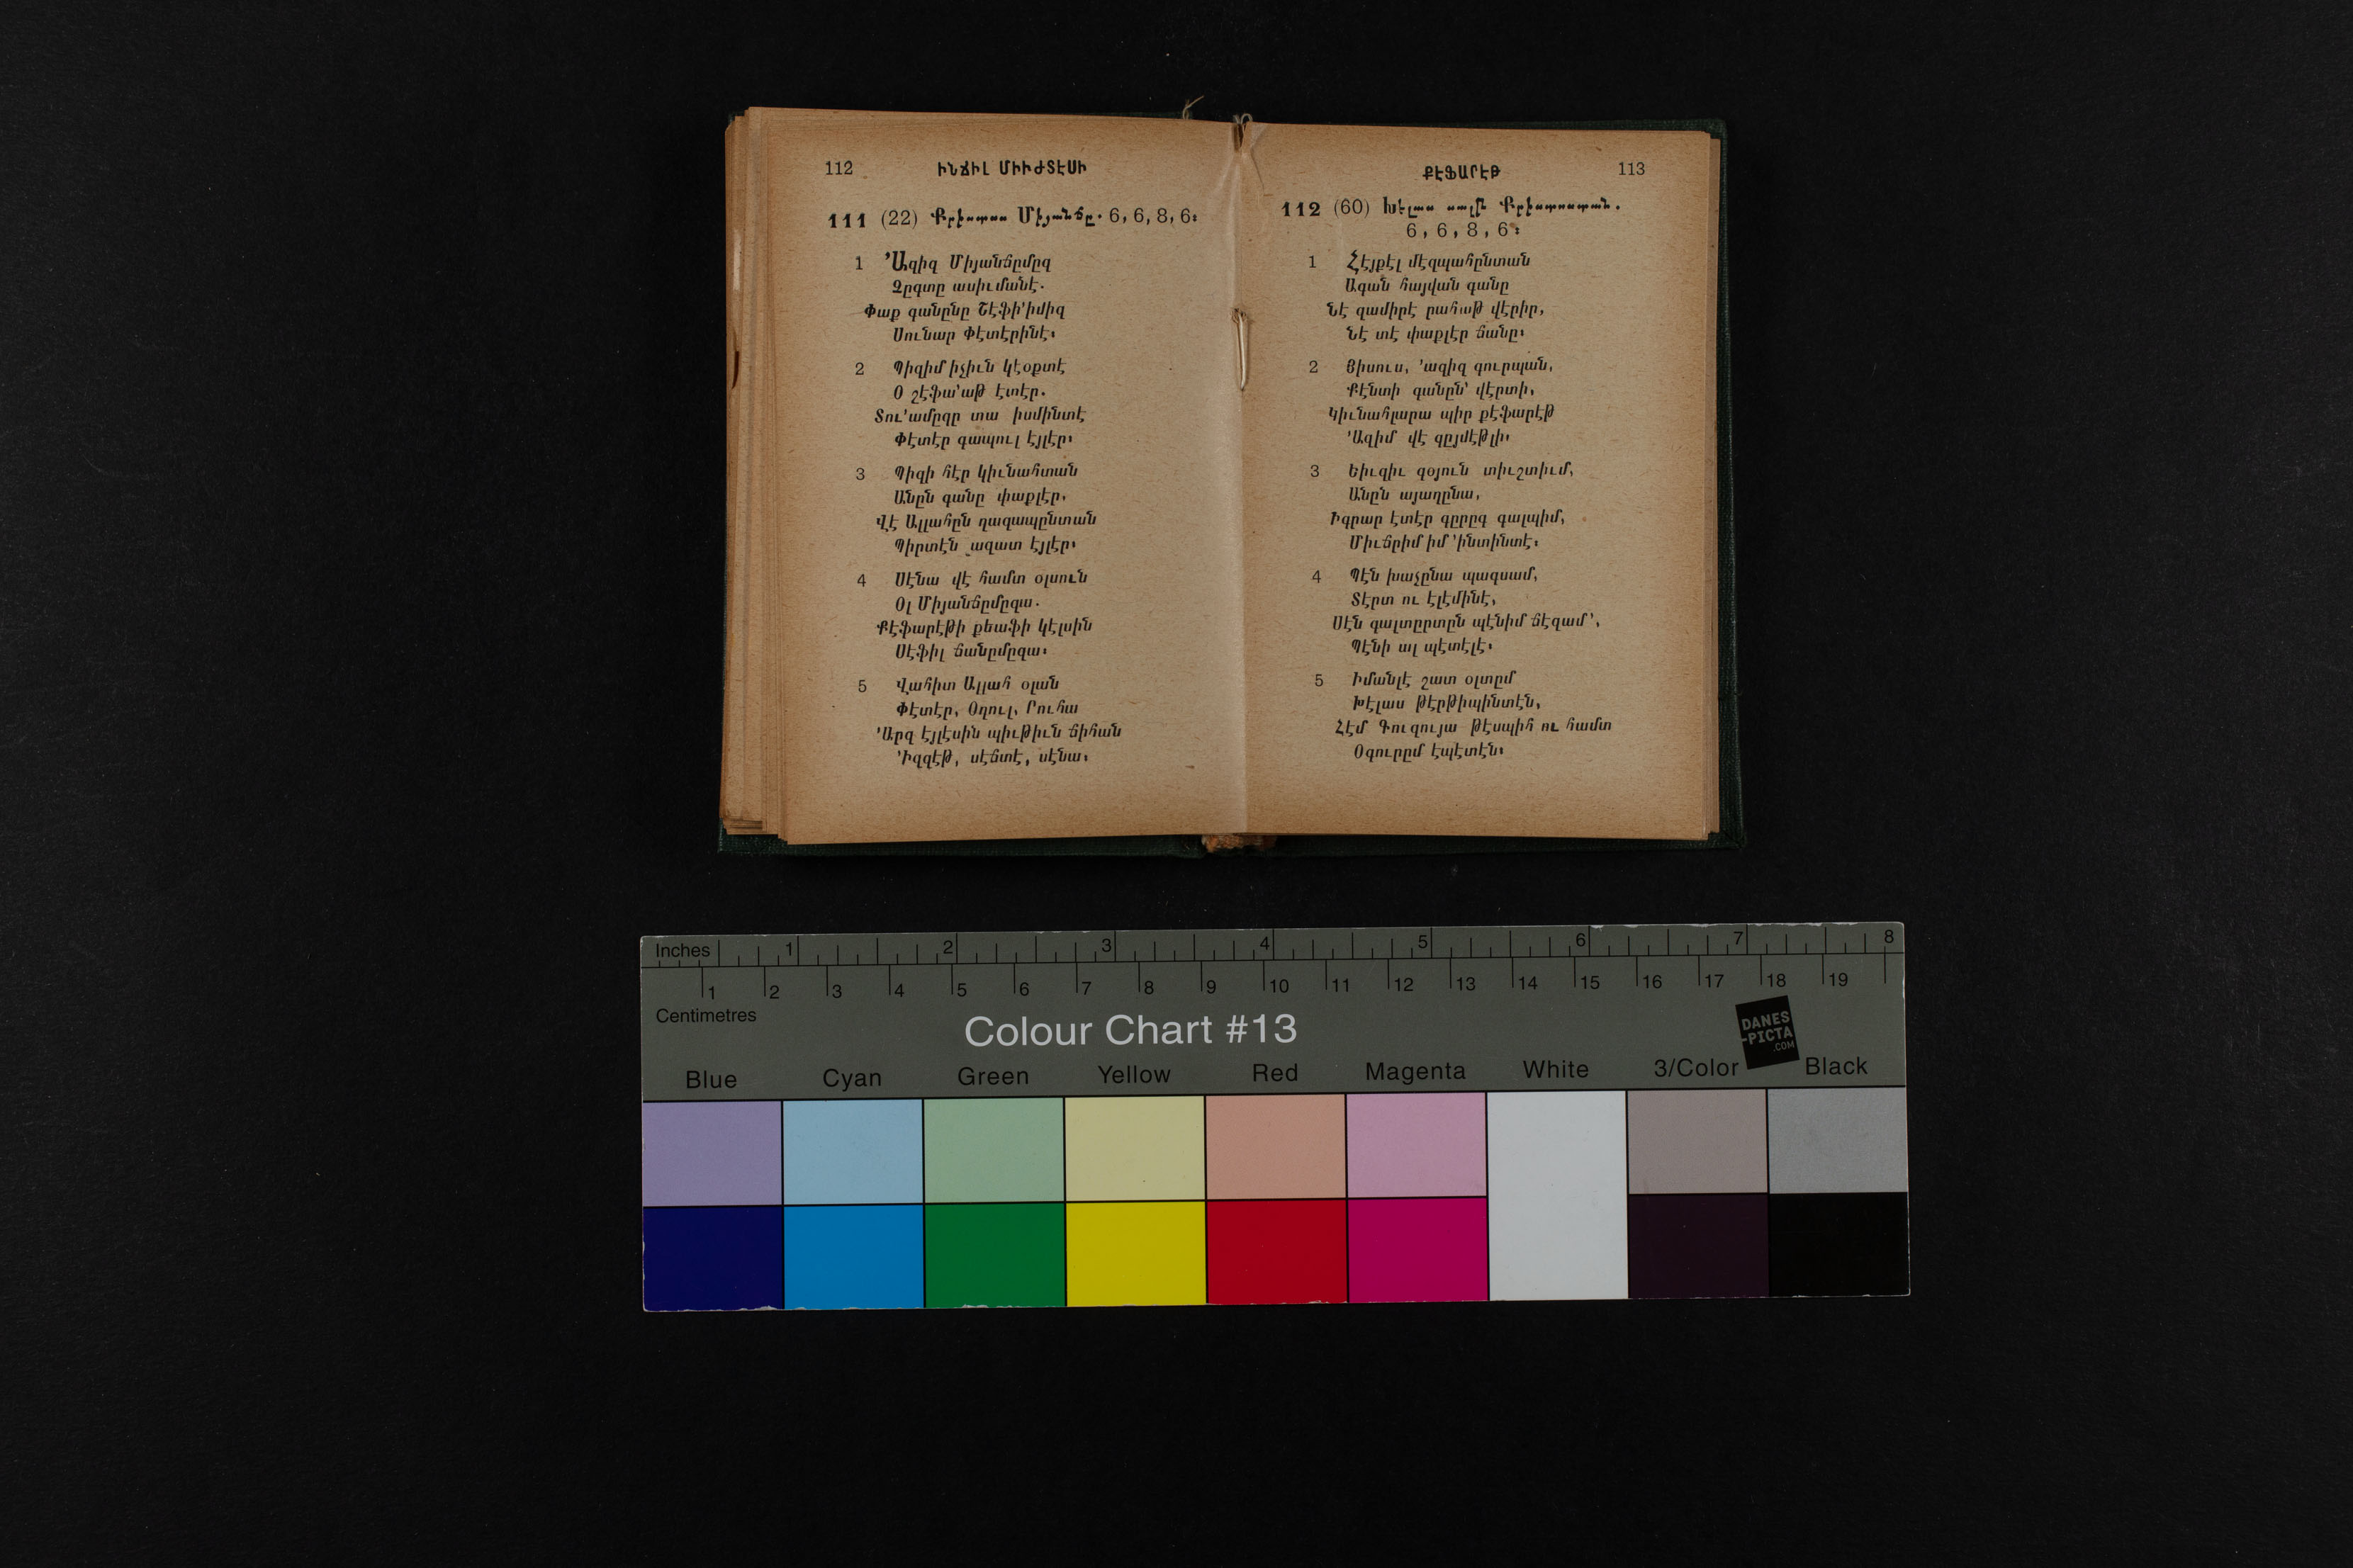 112
ԻՆՃԻԼ ՄԻՒԺՏԷՍԻ
111 (22) Քրիստոս Միյանճը. 6, 6, 8, 6։
1 ՚Ազիզ Միյանճըմըզ
Չըգտը ասիւմանէ.
Փաք գանընը Շէֆի՚իմիզ
Սունար Փէտէրինէ։
2 Պիզիմ իչիւն կէօքտէ
Օ շէֆա՚աթ էտէր.
Տու՚ամըզը տա իսմինտէ
Փէտէր գապուլ էյլէր։
3 Պիզի հէր կիւնահտան
Անըն գանը փաքլէր,
Վէ Ալլահըն ղազապընտան
Պիրտէն ազատ էյլէր։
4 Սէնա վէ համտ օլսուն
Օլ Միյանճըմըզա.
Քէֆարէթի քեաֆի կէլսին
Սէֆիլ ճանըմըզա։
5 Վահիտ Ալլահ օլան
Փէտէր, Օղուլ, Րուհա
՚Արզ էյլէսին պիւթիւն ճիհան
՚Իզզէթ, սէճտէ, սէնա։
ՔԷՖԱՐԷԹ
113
112 (60) Խէլաս սալլն Քրիստոստան.
6, 6, 8, 6։
1 Հէյքէլ մէզպահընտան
Ագան հայվան գանը
Նէ զամիրէ րահաթ վէրիր,
Նէ տէ փաքլէր ճանը։
2 Յիսուս, ՚ազիզ գուրպան,
Քէնտի գանըն՝ վէրտի,
Կիւնահլարա պիր քէֆարէթ
՚Ազիմ վէ գըյմէթլի։
3 Եիւզիւ գօյուն տիւշտիւմ,
Անըն այաղընա,
Իգրար էտէր գըրըգ գալպիմ,
Միւճրիմ իմ ՚ինտինտէ։
4 Պէն խաչընա պագսամ,
Տէրտ ու էլէմինէ,
Սէն գալտըրտըն պէնիմ ճէզամ՝,
Պէնի ալ պէտէլէ։
5 Իմանլէ շատ օլտըմ
Խէլաս թէրթիպինտէն,
Հէմ Գուզույա թէսպիհ ու համտ
Օգուրըմ էպէտէն։
Inches 1 2 3 4 5 6 7 8
1 2 3 4 5 6 7 8 9 10 11 12 13 14 15 16 17 18 19
Centimetres
Colour Chart #13
DANES
-PICTA
.COM
Blue Cyan Green Yellow Red Magenta White 3/Color Black